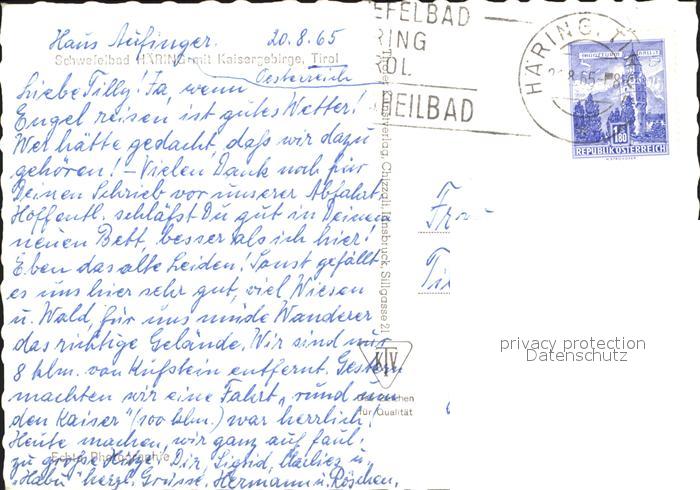 Haus Aufinger. 20.8.65
Schwefelbad HÄRING mit Kaisergebirge, Tirol
Oesterreich
Liebe Tilly! Ja, wenn
Engel reisen ist gutes Wetter!
Wer hätte gedacht, daß wir dazu
gehören! – Vielen Dank noch für
Deinen Schrieb vor unserer Abfahrt,
Hoffentl. schläfst Du gut in Deinem
neuen Bett, besser als ich hier!
Eben das alte Leiden! Sonst gefällt
es uns hier sehr gut, viel Wiesen
u. Wald, für uns müde Wanderer
das richtige Gelände. Wir sind nur
8 klm. von Kufstein entfernt. Gestern
machten wir eine Fahrt „rund um
den Kaiser" (100 klm.) war herrlich!
Heute machen, wir ganz auf faul,
zu große Hitze. Dir, Sigrid, u.
"Habu" herzl. Grüsse. Hermann u. Röschen.
Echte Photographie
Tiroler Kunstverlag, Chizzali, Innsbruck, Sillgasse 21
KTV
für Qualität
EFELBAD
RING
ROL
HEILBAD
HÄRING, TI
8.65
1.80
REPUBLIK ÖSTERREICH
Fr
Ti
privacy protection
Datenschutz